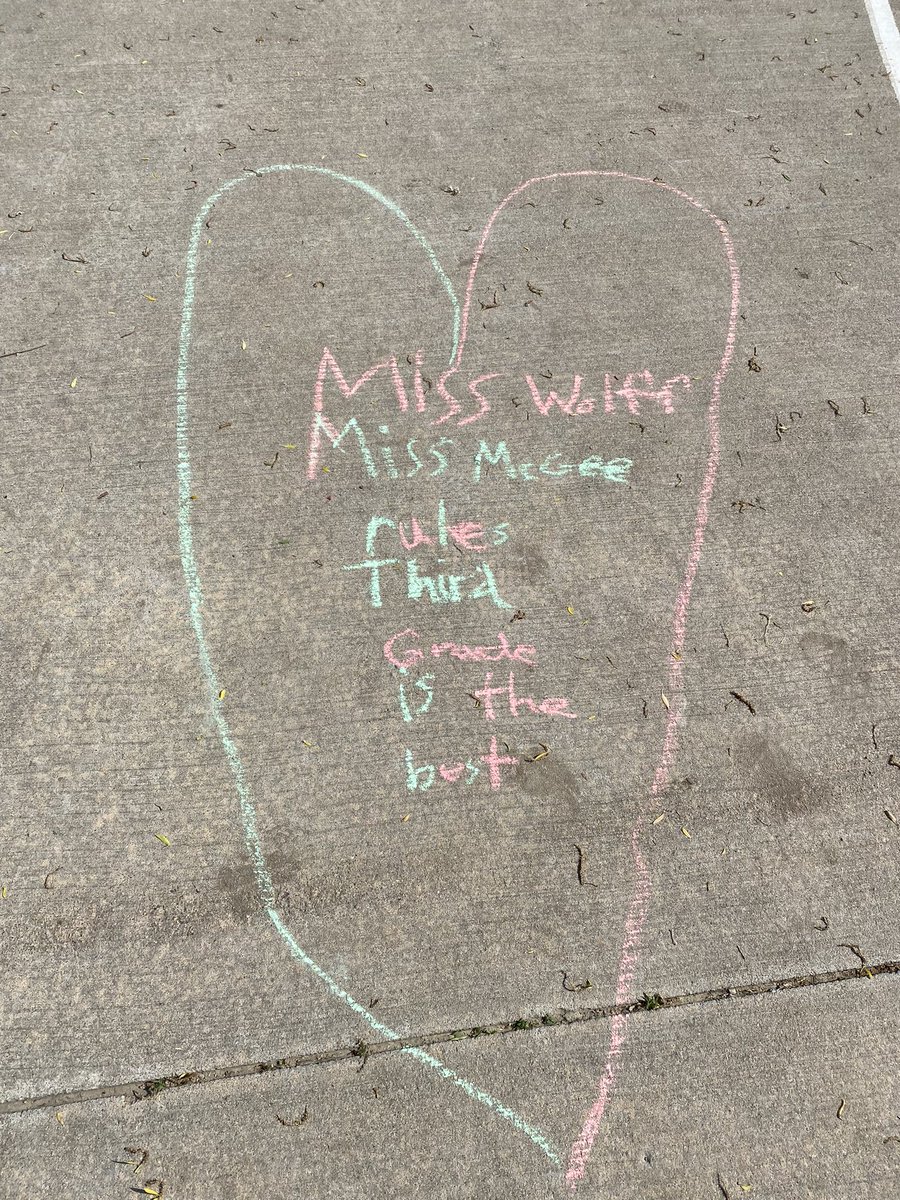 Miss Wolff
Miss McGee
rules
Third
Grade
is the
best